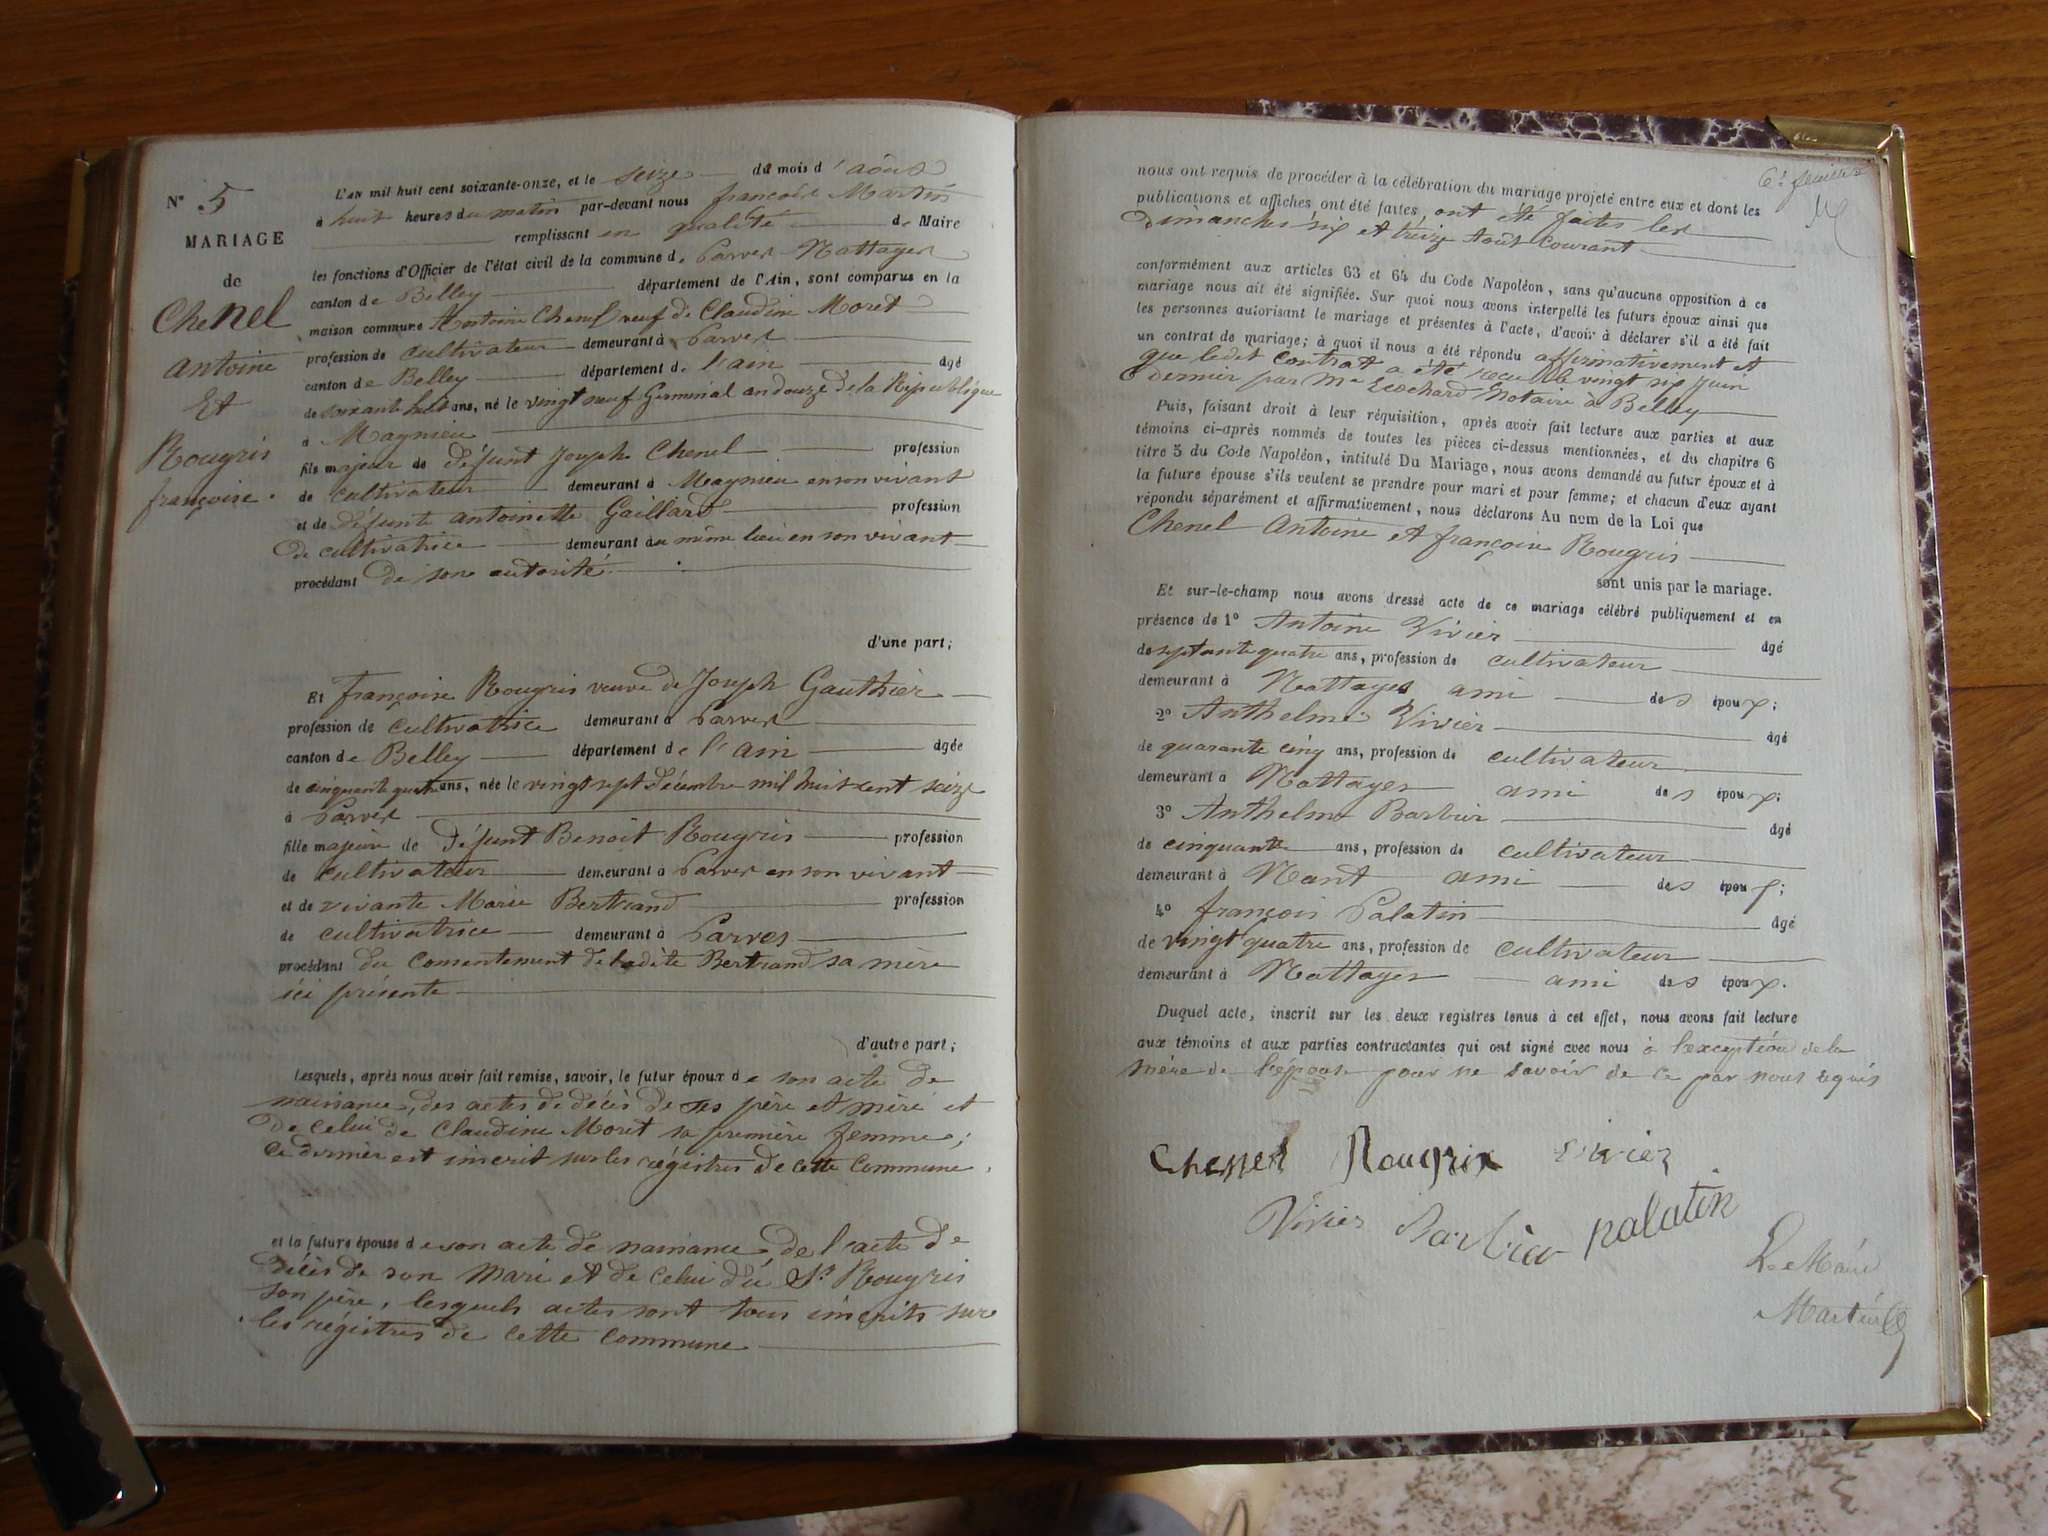 N° 5
MARIAGE
de
Chenel
Antoine
Et
Rougris
françoise.
L'an mil huit cent soixante-onze, et le seize du mois d'août
à huit heures du matin par-devant nous françois Martin
remplissant en qualité de Maire
les fonctions d'Officier de l'état civil de la commune de Parves Nattages
canton de Belley département de l'Ain, sont comparus en la
maison commune Antoine Chenel veuf de Claudine Moret
profession de cultivateur demeurant à Parves
canton de Belley département de l'ain âgé
de soixante huit ans, né le vingt neuf Germinal an douze de la République
à Magnieu
fils majeur de défunt Joseph Chenel profession
de cultivateur demeurant à Magnieu en son vivant
et de défunte antoinette Gaillard profession
de cultivatrice demeurant au même lieu en son vivant
procédant de son autorité
d'une part;
Et françoise Rougris veuve de Joseph Gauthier
profession de cultivatrice demeurant à Parves
canton de Belley département de l'ain âgée
de cinquante quatre ans, née le vingt sept décembre mil huit cent seize
à Parves
fille majeure de défunt Benoit Rougris profession
de cultivateur demeurant à Parves en son vivant
et de vivante Marie Bertrand profession
de cultivatrice demeurant à Parves
procédant du consentement de ladite Bertrand sa mère
ici présente
d'autre part;
Lesquels, après nous avoir fait remise, savoir, le futur époux de son acte de
naissance, des actes de décès de ses père et mère et
de celui de Claudine Moret sa première femme;
ce dernier est inscrit sur les régistres de cette commune.
et la future épouse de son acte de naissance, de l'acte de
décès de son mari et de celui du Sr Rougris
son père, lesquels actes sont tous inscrits sur
les régistres de cette commune
6e feuillet
nous ont requis de procéder à la célébration du mariage projeté entre eux et dont les
publications et affiches ont été faites, ont été faites les
dimanches six et treize Août courant
conformément aux articles 63 et 64 du Code Napoléon, sans qu'aucune opposition à ce
mariage nous ait été signifiée. Sur quoi nous avons interpellé les futurs époux ainsi que
les personnes autorisant le mariage et présentes à l'acte, d'avoir à déclarer s'il a été fait
un contrat de mariage; à quoi il nous a été répondu affirmativement et
que ledit contrat a été reçu le vingt six Juin
dernier par Me Ecochard Notaire à Belley
Puis, faisant droit à leur réquisition, après avoir fait lecture aux parties et aux
témoins ci-après nommés de toutes les pièces ci-dessus mentionnées, et du chapitre 6
titre 5 du Code Napoléon, intitulé Du Mariage, nous avons demandé au futur époux et à
la future épouse s'ils veulent se prendre pour mari et pour femme; et chacun d'eux ayant
répondu séparément et affirmativement, nous déclarons Au nom de la Loi que
Chenel Antoine et françoise Rougris
sont unis par le mariage.
Et sur-le-champ nous avons dressé acte de ce mariage célébré publiquement et en
présence de 1° Antoine Vivier âgé
de septante quatre ans, profession de cultivateur
demeurant à Nattages ami des époux;
2° Anthelme Vivier âgé
de quarante cinq ans, profession de cultivateur
demeurant à Nattages ami des époux;
3° Anthelme Barbier âgé
de cinquante ans, profession de cultivateur
demeurant à Nant ami des époux;
4° françois Palatin âgé
de vingt quatre ans, profession de cultivateur
demeurant à Nattages ami des époux.
Duquel acte, inscrit sur les deux registres tenus à cet effet, nous avons fait lecture
aux témoins et aux parties contractantes qui ont signé avec nous à l'exception de la
mère de l'épouse pour ne savoir de ce par nous requis
Chenel Rougris Vivier
Vivier Barbier palatin
Le Maire
Martin